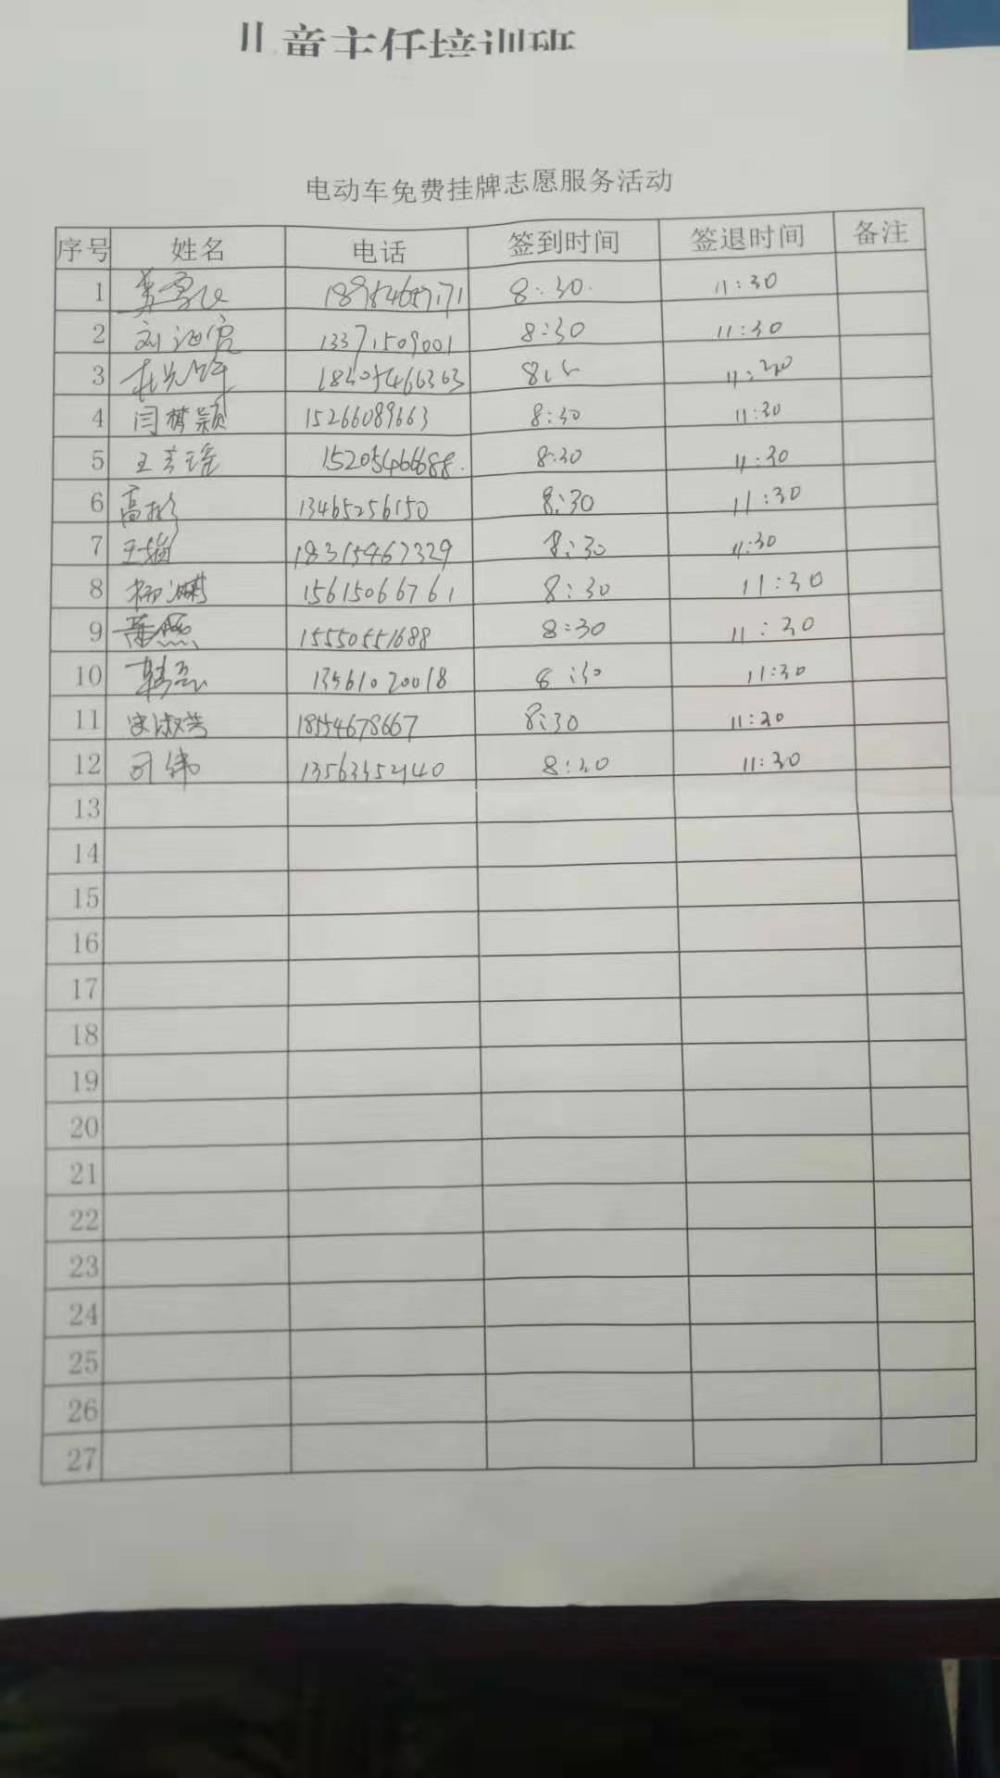 儿童主任培训班
电动车免费挂牌志愿服务活动
序号 姓名 电话 签到时间 签退时间 备注
1 8:30 11:30
2 刘 13371509001 8:30 11:30
3 11:30
4 闫梦颖 15266089663 8:30 11:30
5 王 15205466688 8:30 11:30
6 高 13465256150 8:30 11:30
7 王 18315467329 8:30 11:30
8 15615066761 8:30 11:30
9 15550551688 8:30 11:30
10 韩磊 13561020018 8:30 11:30
11 宋淑芳 18554678667 8:30 11:30
12 司伟 8:30 11:30
13
14
15
16
17
18
19
20
21
22
23
24
25
26
27